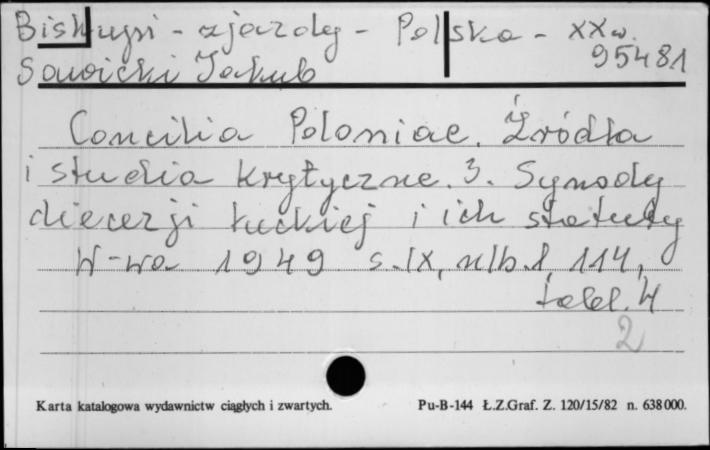 Biskupi - zjazdy - Polska - XXw.
95481
Sawicki Jakub
Concilia Poloniae. Źródła
i studia krytyczne. 3. Synody
diecezji łuckiej i ich statuty
W-wa 1949 s. IX, nlb. 1, 114,
tabl. 4
2
Karta katalogowa wydawnictw ciągłych i zwartych. Pu-B-144 Ł.Z.Graf. Z. 120/15/82 n. 638000.